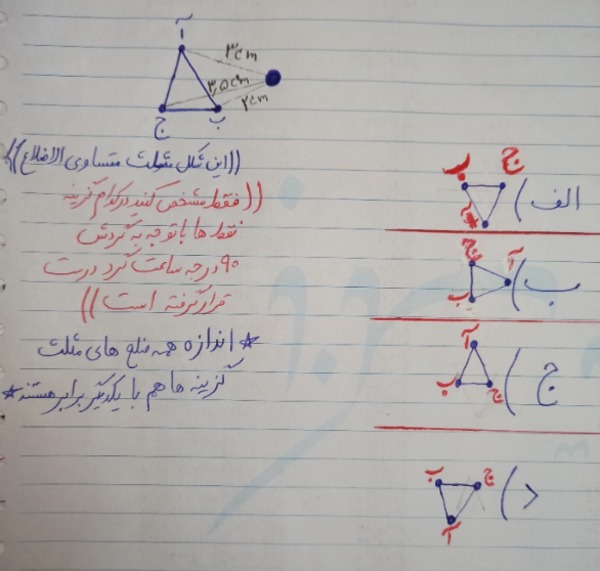 آ
۳cm
۳,۵cm
۲cm
ج
ب
((این شکل مثلث متساوی الاضلاع))
((فقط مشخص کنید در کدام گزینه
نقطه ها با توجه به گردش
۹۰ درجه ساعت گرد درست
قرار گرفته است))
* اندازه همه ضلع های مثلث
گزینه ها هم با یکدیگر برابر هستند *
الف) ب ج آ
ب) ج آ ب
ج) آ ب ج
د) ب ج آ